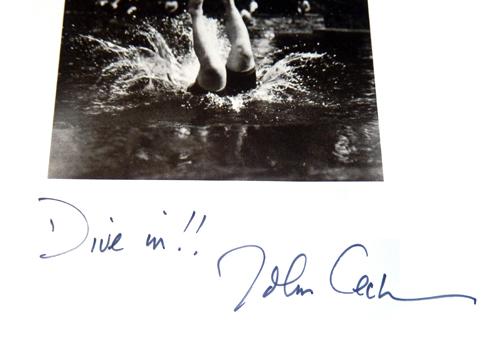 Dive in!!
John Cech